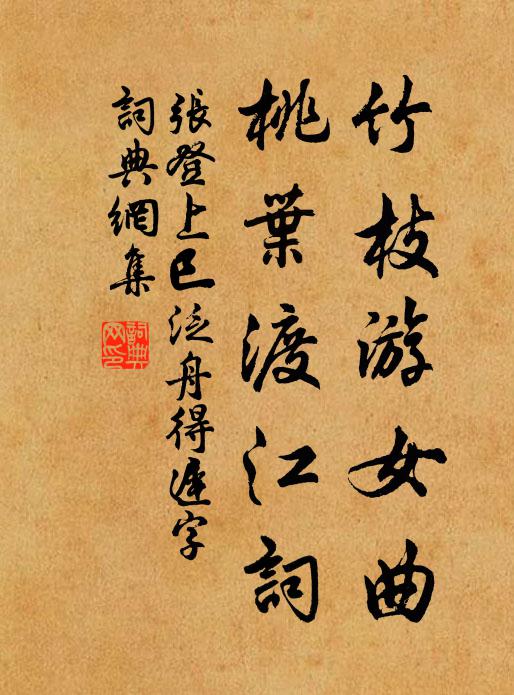 竹枝游女曲
桃葉渡江詞
張登上巳泛舟得遲字
詞典網集
詞典網印